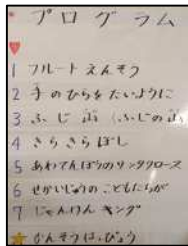 プログラム
1 フルートえんそう
2 手のひらをたいように
3 ふじ山(ふじの山
4 きらきらぼし
5 あわてんぼうのサンタクロース
6 せかいじゅうのこどもたちが
7 じゃんけんキング
かんそうはっぴょう